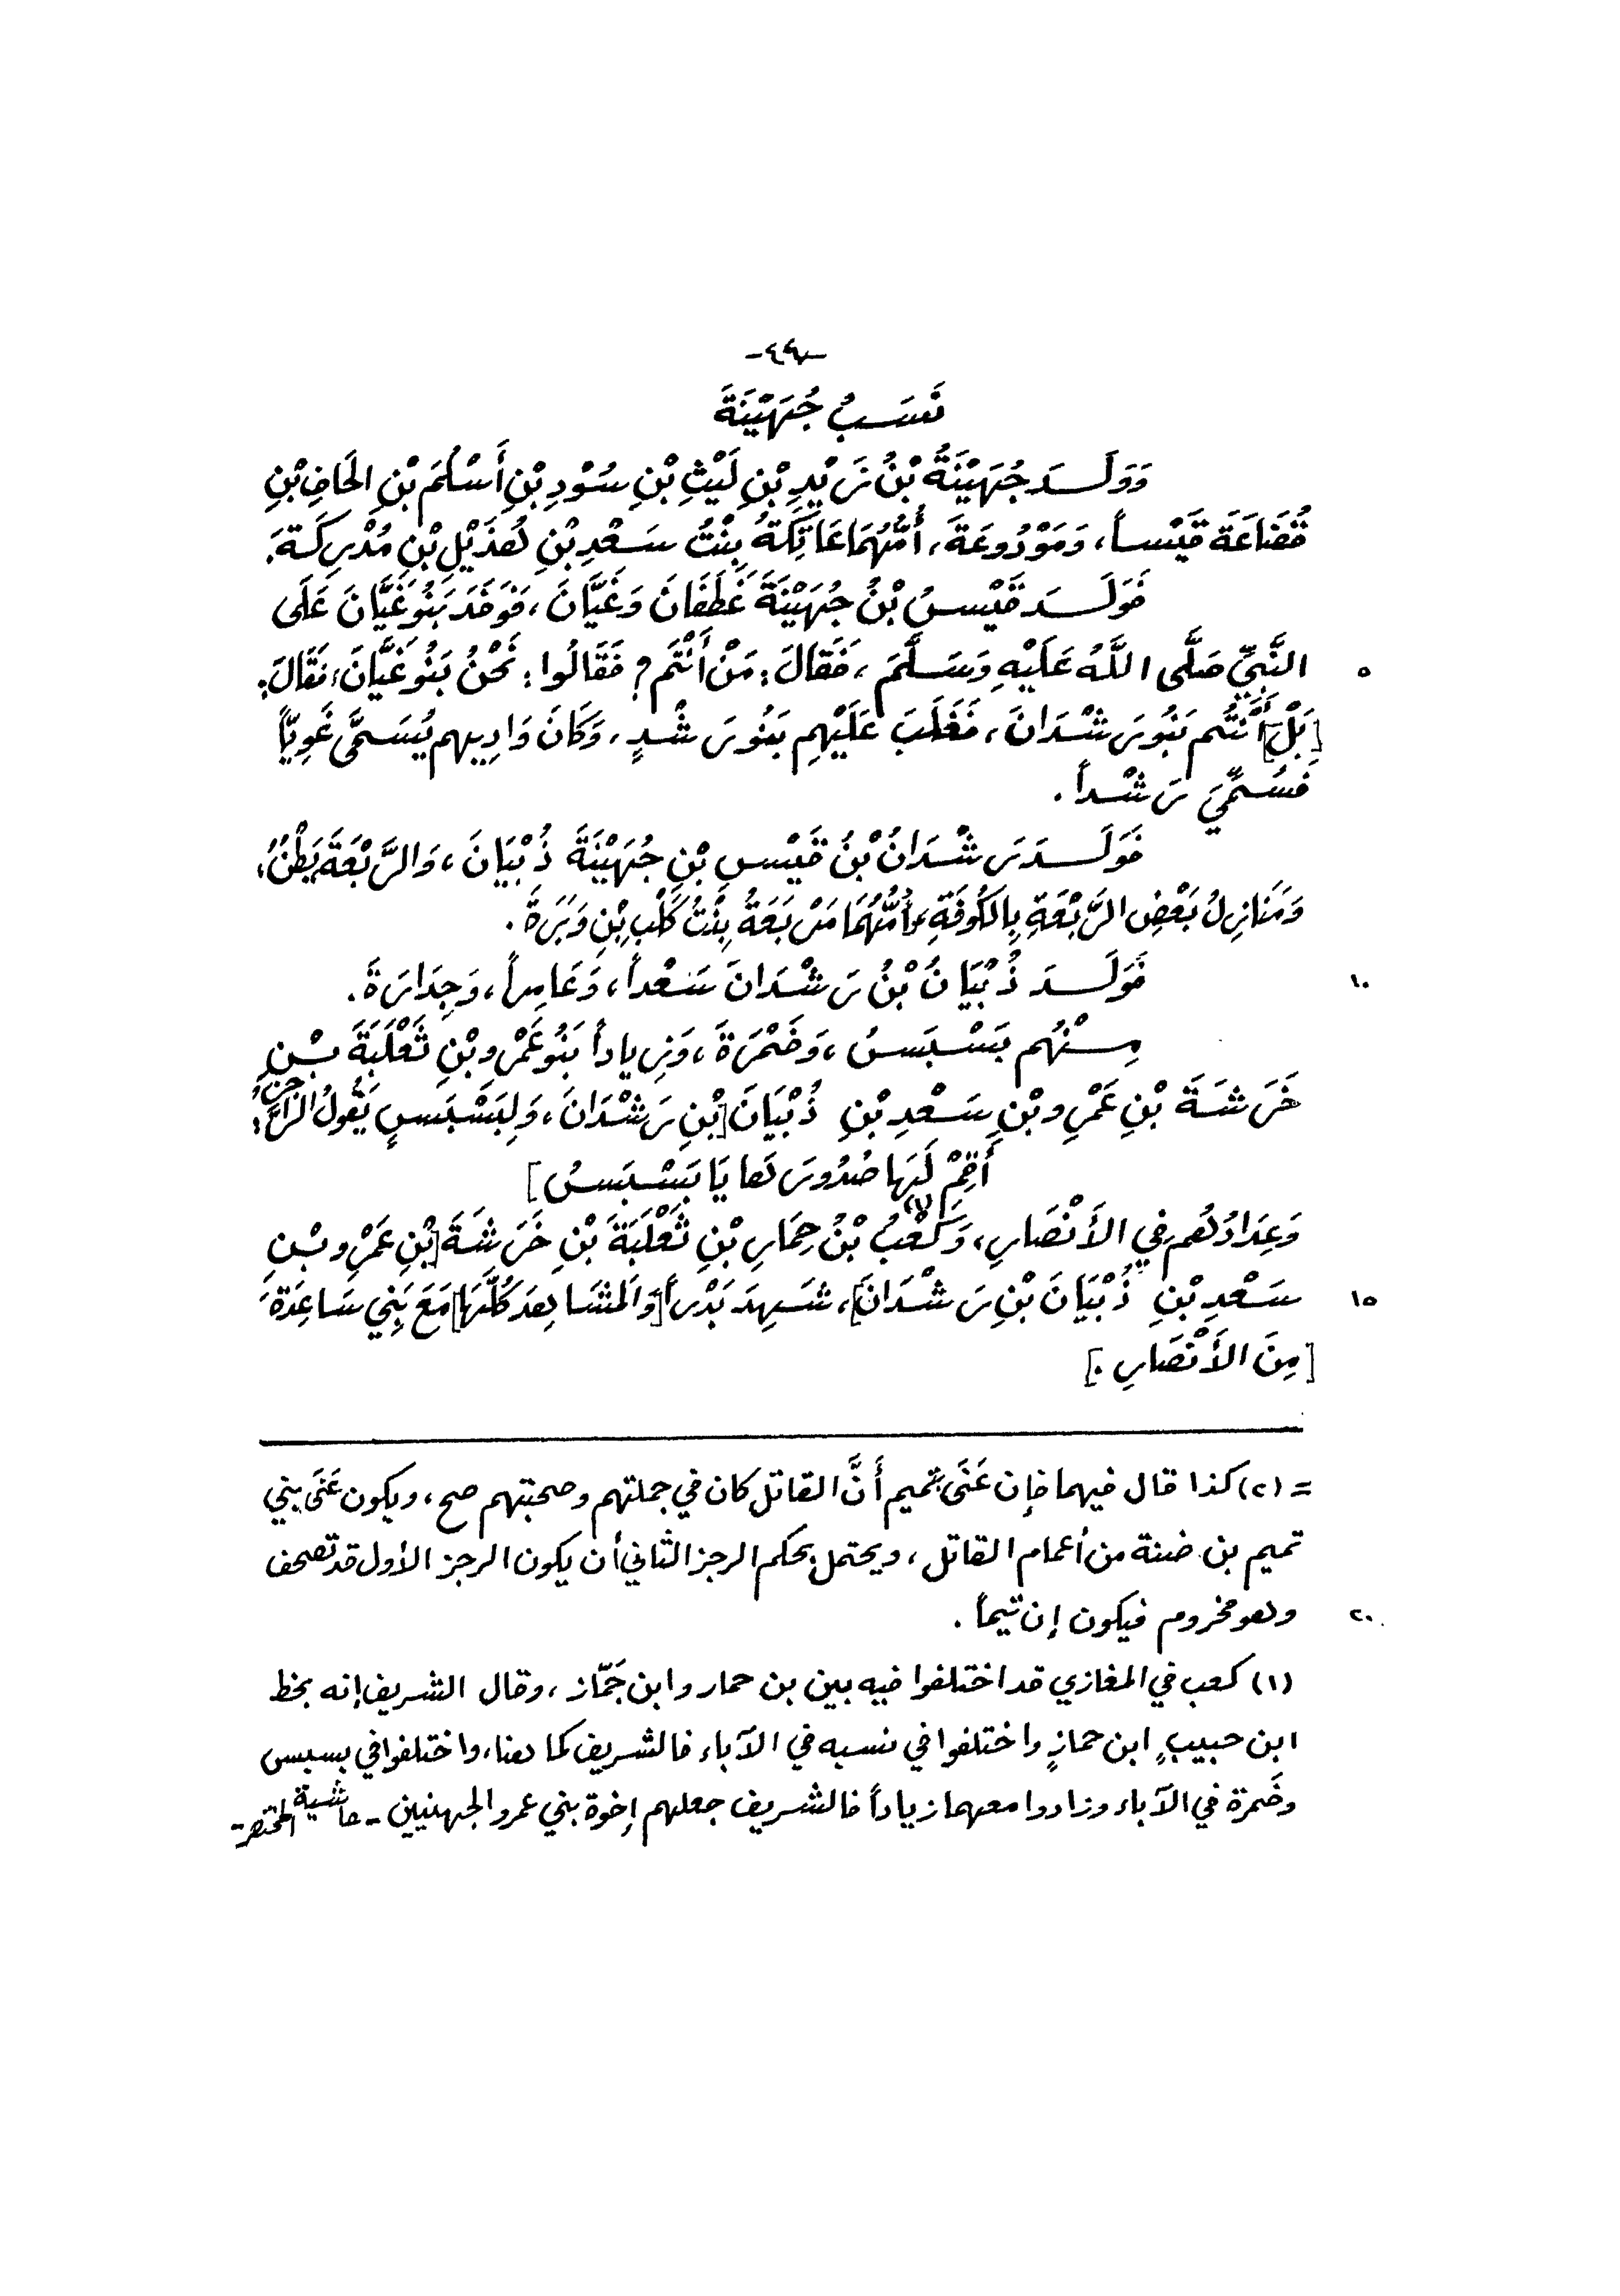 نَسَبُ جُهَيْنَةَ
وَوَلَدَ جُهَيْنَةُ بْنُ زَيْدِ بْنِ لَيْثِ بْنِ سُوْدِ بْنِ أَسْلُمَ بْنِ الحَافِ بْنِ
قُضَاعَةَ قَيْساً، وَمَوْدُوعَةَ، أُمُّهُمَا عَاتِكَةُ بِنْتُ سَعْدِ بْنِ هُذَيْلِ بْنِ مُدْرِكَةَ.
فَوَلَدَ قَيْسُ بْنُ جُهَيْنَةَ غَطَفَانَ وَغَيَّانَ، فَوَفَدَ بَنُو غَيَّانَ عَلَى
٥ النَّبِيِّ صَلَّى اللَّهُ عَلَيْهِ وَسَلَّمَ، فَقَالَ: مَنْ أَنْتُم؟ فَقَالُوا: نَحْنُ بَنُو غَيَّانَ، فَقَالَ:
[بَلْ] أَنْتُم بَنُو رَشْدَانَ، فَغَلَبَ عَلَيْهِم بَنُو رَشْدٍ، وَكَانَ وَادِيهم يُسَمَّى غَوِيّاً
فَسُمِّيَ رَشْداً.
فَوَلَدَ رَشْدَانُ بْنُ قَيْسِ بْنِ جُهَيْنَةَ ذُبْيَانَ، وَالرَّبْعَةَ بَطْنٌ،
وَمَنَازِلُ بَعْضِ الرَّبْعَةِ بِالكُوفَةِ، وَأُمُّهُمَا مَرْبَعَةُ بِنْتُ كَلْبِ بْنِ وَبَرَةَ.
١٠ فَوَلَدَ ذُبْيَانُ بْنُ رَشْدَانَ سَعْداً، وَعَامِراً، وَجِدَارَةَ.
مِنْهُم بَسْبَسُ، وَضَمْرَةَ، وَزِياداً بَنُو عَمْرِو بْنِ ثَعْلَبَةَ بْنِ
خَرَشَةَ بْنِ عَمْرِو بْنِ سَعْدِ بْنِ ذُبْيَانَ [بْنِ رَشْدَانَ، وَلِبَسْبَسٍ يَقُولُ الرَّاجِزُ:
أَقِمْ لَهَا صُدُورَهَا يَا بَسْبَسُ]
وَعِدَادُهُم فِي الأَنْصَارِ، وَكَعْبُ (١) بْنُ حِمَارِ بْنِ ثَعْلَبَةَ بْنِ خَرَشَةَ [بْنِ عَمْرِو بْنِ
١٥ سَعْدِ بْنِ ذُبْيَانَ بْنِ رَشْدَانَ]، شَهِدَ بَدْراً [وَالمَشَاهِدَ كُلَّهَا] مَعَ بَنِي سَاعِدَةَ
[مِنَ الأَنْصَارِ.]
= (٢) كذا قال فيهما فإن عَنَى بتميم أَنَّ القاتل كان في جملتهم وصحبتهم صح، ويكون عَنَى بني
تميم بن ضنة من أعمام القاتل، ويحتمل بحكم الرجز الثاني أن يكون الرجز الأول قد تصحف
٢٠ وهو مخروم فيكون إن تيماً.
(١) كعب في المغازي قد اختلفوا فيه بين بن حمار وابن جَمّاز، وقال الشريف إنه بخط
ابن حبيبٍ ابن حمازٍ واختلفوا في نسبه في الآباء فالشريف كما هنا، واختلفوا في بسبس
وضَمرة في الآباء وزادوا معهما زياداً فالشريف جعلهم إخوة بني عمرو الجهنيين - حاشية المختصر-